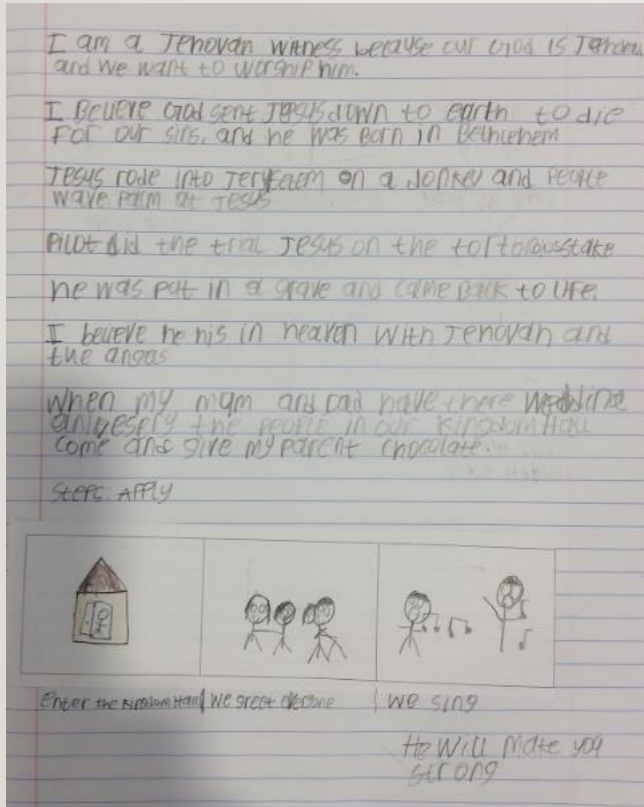 I am a Jehovah witness because our God is Jehovah
and we want to worship him.
I Believe God sent Jesus down to earth to die
for our sins, and he was Born in Bethlehem
Jesus rode into Jeruselem on a donkey and People
wave Palm at Jesus
Pilot did the trial Jesus on the tortorousstake
he was put in a grave and came back to life.
I believe he his in heaven with Jehovah and
the angas
When my mum and Dad have there wedding
anivesery the people in our Kingdom Hall
come and give my parent chocolate.
Steps: APPLY
Enter the Kingdom Hall
We greet everyone
We sing
He Will Make you
strong